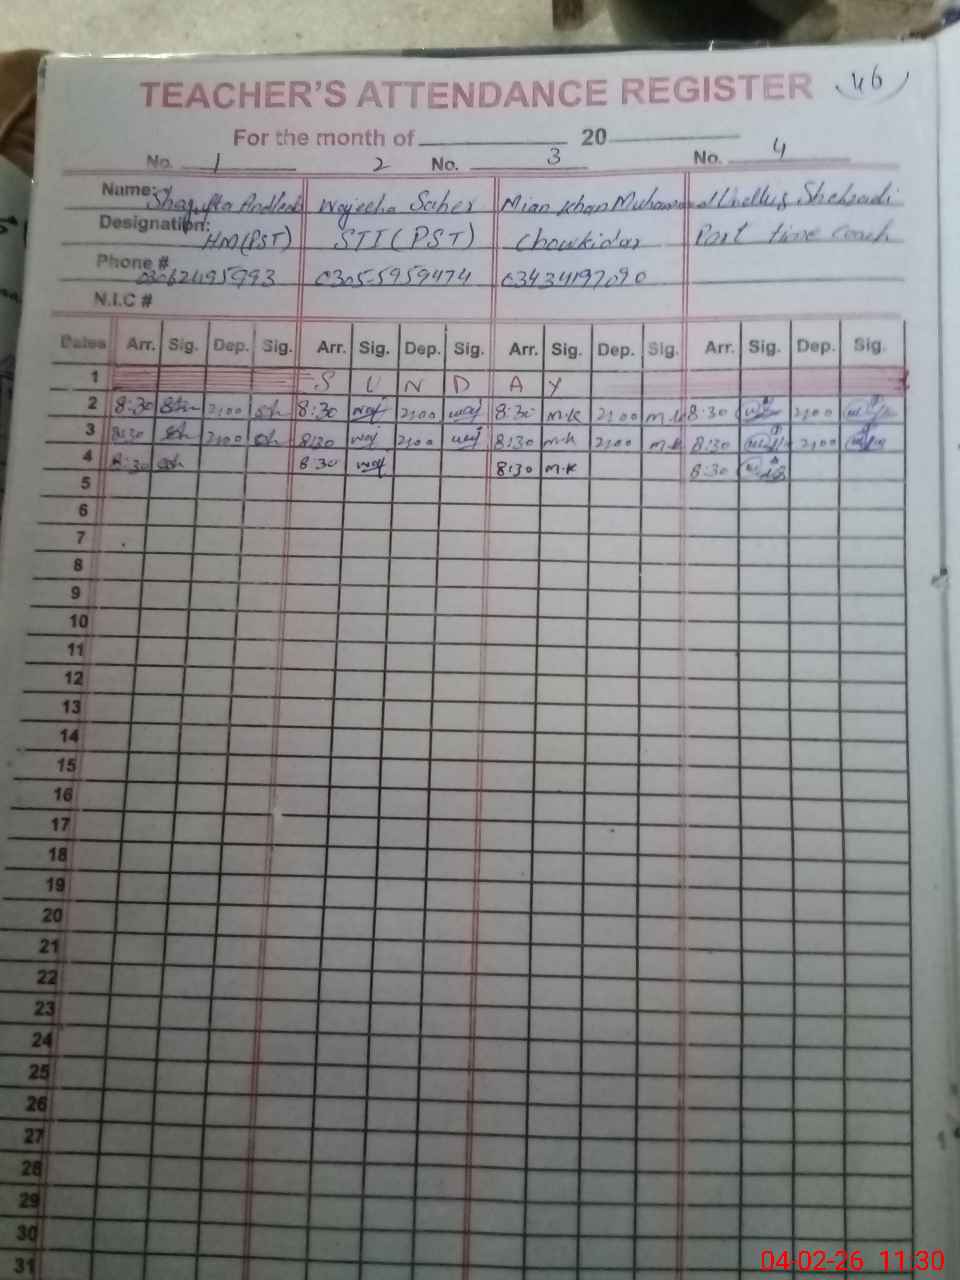 TEACHER'S ATTENDANCE REGISTER 46
For the month of 20
No. 1 2 No. 3 No. 4
Name: Wajeeha Saher Mian Khan Muhammad Shehzadi
Designation: HM(PST) STI(PST) Chowkidar Part time Coach
Phone # 03062495993 03055959474 03434197090
N.I.C #
Dates Arr. Sig. Dep. Sig. Arr. Sig. Dep. Sig. Arr. Sig. Dep. Sig. Arr. Sig. Dep. Sig.
1 S U N D A Y
2 8:30 2:00 8:30 waj 2:00 waj 8:30 M.K 2:00 M.K 8:30 2:00
3 8:30 Sh 2:00 Sh 8:30 waj 2:00 waj 8:30 M.K 2:00 M.K 8:30 2:00
4 8:30 Sh 8:30 waj 8:30 M.K 8:30
5
6
7
8
9
10
11
12
13
14
15
16
17
18
19
20
21
22
23
24
25
26
27
28
29
30
31
04-02-26 11:30